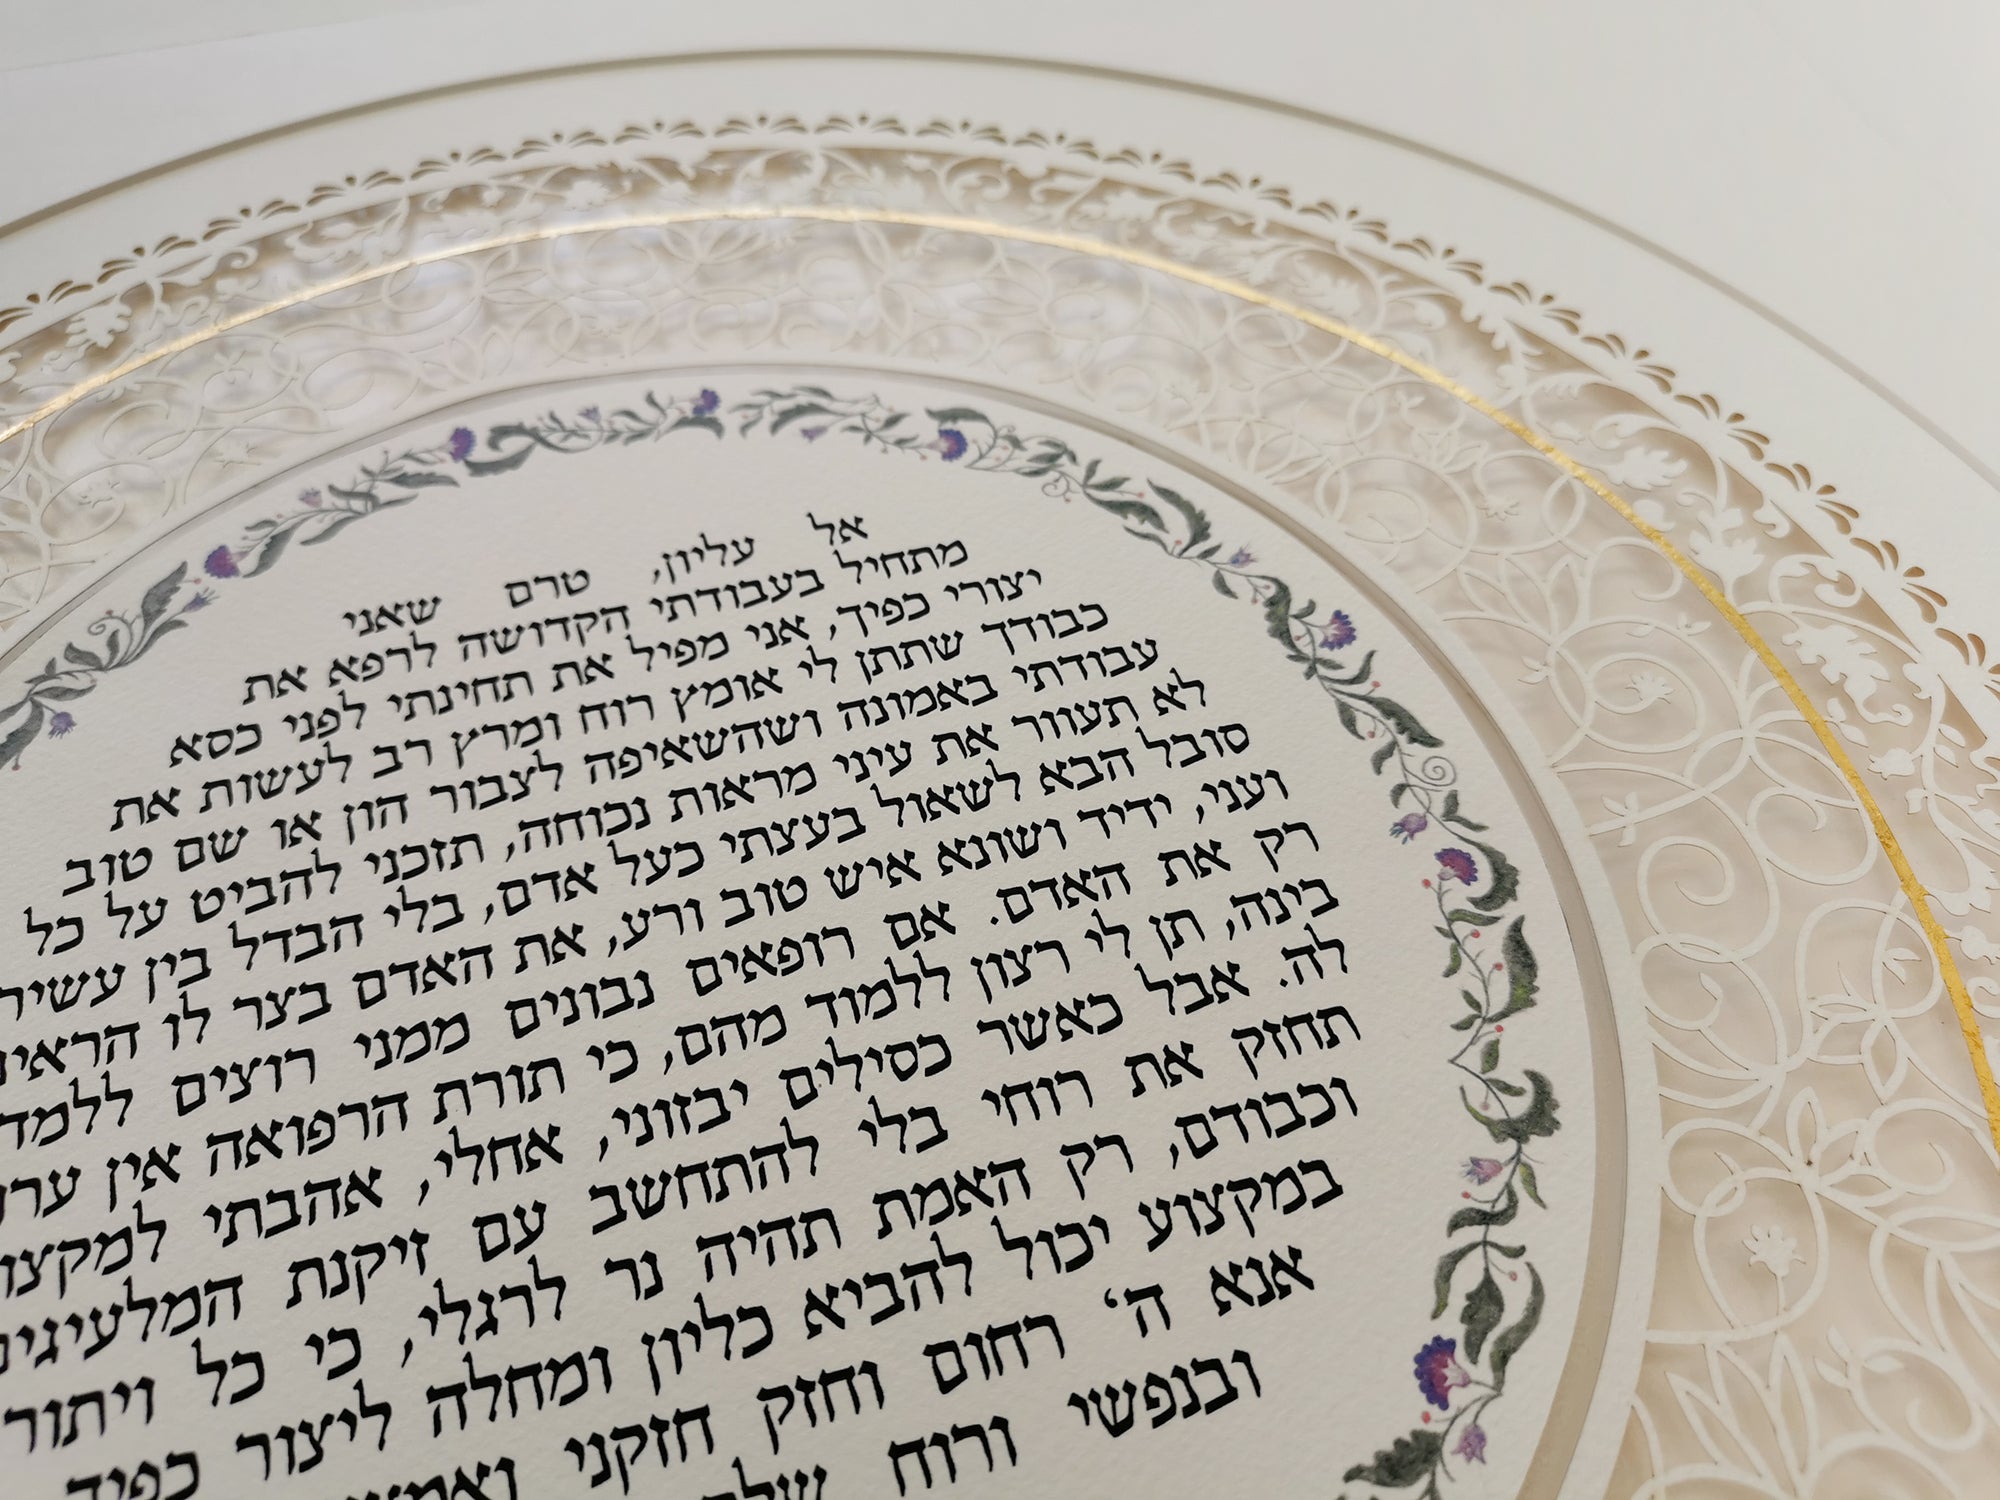 אל עליון, טרם שאני
מתחיל בעבודתי הקדושה לרפא את
יצורי כפיך, אני מפיל את תחינתי לפני כסא
כבודך שתתן לי אומץ רוח ומרץ רב לעשות את
עבודתי באמונה ושהשאיפה לצבור הון או שם טוב
לא תעוור את עיני מראות נכוחה, תזכני להביט על כל
סובל הבא לשאול בעצתי כעל אדם, בלי הבדל בין עשיר
ועני, ידיד ושונא איש טוב ורע, את האדם בצר לו הראיני
רק את האדם. אם רופאים נבונים ממני רוצים ללמדני
בינה, תן לי רצון ללמוד מהם, כי תורת הרפואה אין ערוך
לה. אבל כאשר כסילים יבזוני, אחלי, אהבתי למקצוע
תחזק את רוחי בלי להתחשב עם זיקנת המלעיגים
וכבודם, רק האמת תהיה נר לרגלי, כי כל ויתור
במקצוע יכול להביא כליון ומחלה ליצור כפיך
אנא ה' רחום וחזק חזקני
ובנפשי ורוח